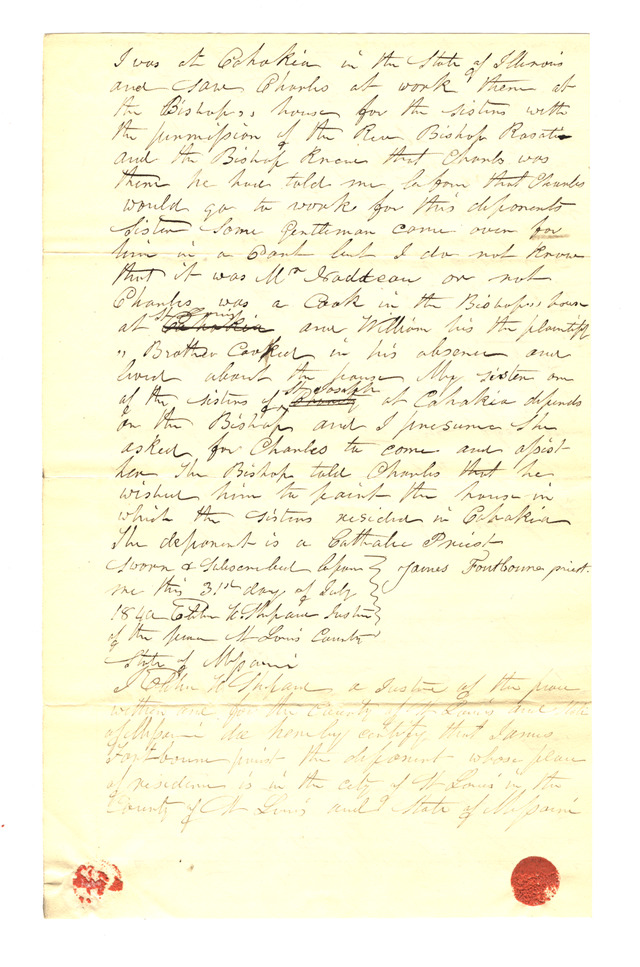 I was at Cahokia in the State of Illinois
and saw Charles at work there at
the Bishops,, house for the sisters with
the permission of the Rev Bishop Rosati
and the Bishop Knew that Charls was
there he had told me before that Charles
would go to work for this deponents
Sister Some gentleman came over for
him in a Cart but I do not know
that it was Mr Nadeau or not
Charles was a Cook in the Bishops,, house
at St Louis Cahokia and William his the plaintiff
,, Brother Cooked in his absence and
lived about the house My sister one
of the sisters of St Joseph at Cahokia depends
on the Bishop and I presume she
asked for Charles to come and assist
her The Bishop told Charles that he
wished him to paint the house in
which the sisters resided in Cahokia
The deponent is a Catholic Priest
Sworn & Subscribed before James Fontbonne priest.
me this 31st day of July
1840 Justice
of the peace St Louis County
State of Missouri
I a Justice of the peace
within and for the County of St Louis and State
of Missouri do hereby certify that James
Fontbonne priest the deponent whose place
of residence is in the city of St Louis in the
County of St Louis and State of Missouri